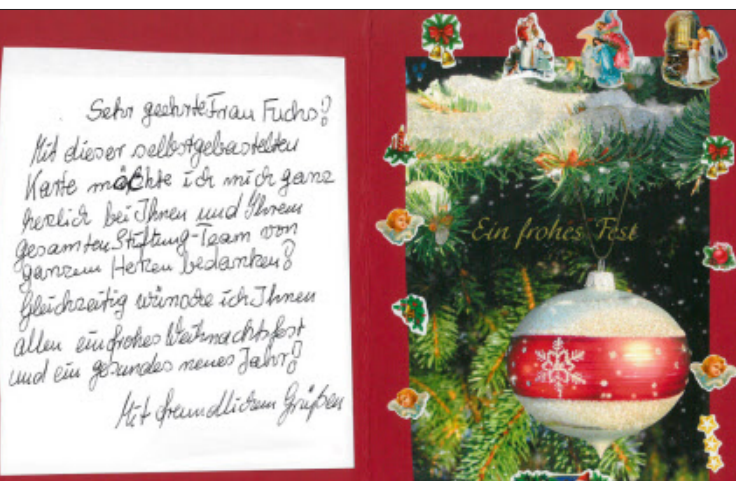 Sehr geehrte Frau Fuchs!
Mit dieser selbstgebastelten
Karte möchte ich mich ganz
herzlich bei Ihnen und Ihrem
gesamten Stiftung-Team von
ganzem Herzen bedanken!
Gleichzeitig wünsche ich Ihnen
allen ein frohes Weihnachtsfest
und ein gesundes neues Jahr!
Mit freundlichem Grüßen
Ein frohes Fest